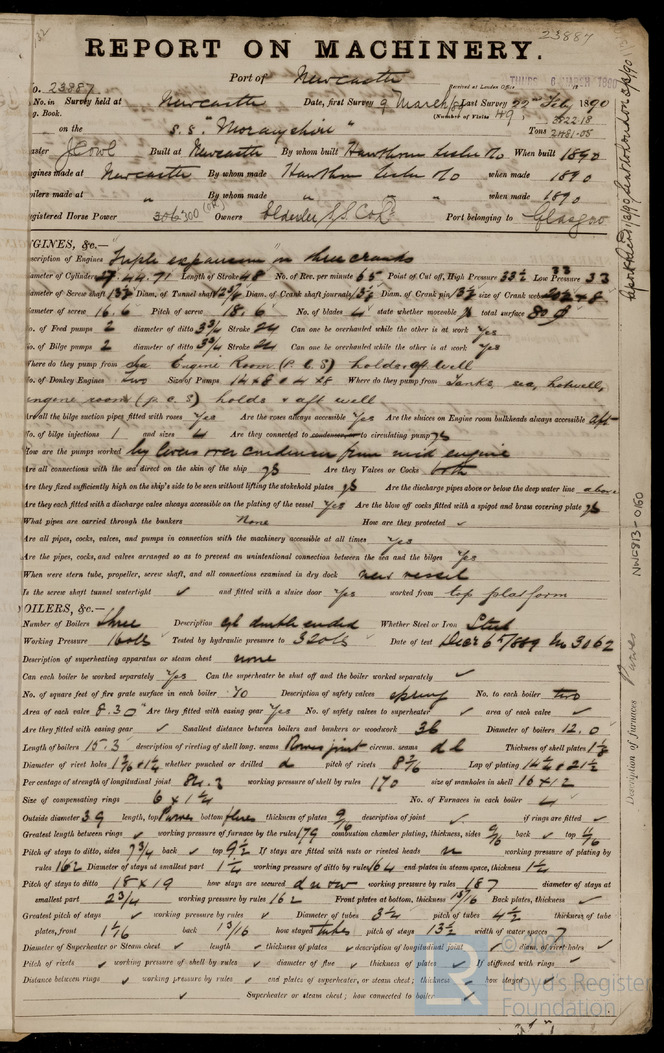 23887
REPORT ON MACHINERY.
Port of Newcastle
Received at London Office THURS. 6 MARCH 1890
No. 23887
No. in Survey held at Newcastle Date, first Survey 9 March/89 Last Survey 22nd Feb 1890
g. Book. (Number of Visits 49)
on the S.S. "Morayshire" Tons 3522.18 2481.05
aster J Cowl Built at Newcastle By whom built Hawthorn Leslie & Co When built 1890
ngines made at Newcastle By whom made Hawthorn Leslie & Co when made 1890
oilers made at " By whom made " " when made 1890
egistered Horse Power 306 300 Owners Elderslie S.S. Co Ld Port belonging to Glasgow
NGINES, &c.—
escription of Engines Triple expansion in three cranks
iameter of Cylinders 44.71 Length of Stroke 48 No. of Rev. per minute 65 Point of Cut off, High Pressure 33½ Low Pressure 33
iameter of Screw shaft 13½ Diam. of Tunnel shaft Diam. of Crank shaft journals 13½ Diam. of Crank pin 13½ size of Crank webs
iameter of screw 16.6 Pitch of screw 18.6 No. of blades 4 state whether moveable total surface 80
o. of Feed pumps 2 diameter of ditto 3¾ Stroke 24 Can one be overhauled while the other is at work Yes
o. of Bilge pumps 2 diameter of ditto 3¾ Stroke 24 Can one be overhauled while the other is at work Yes
Where do they pump from Sea Engine Room (P. & S) holds & aft well
o. of Donkey Engines Two Size of Pumps 14 x 8 & 4 x 8 Where do they pump from Tanks, sea, hotwell,
engine room (p. & S) holds & aft well
Are all the bilge suction pipes fitted with roses Yes Are the roses always accessible Yes Are the sluices on Engine room bulkheads always accessible aft
No. of bilge injections 1 and sizes 4 Are they connected to condenser, or to circulating pump yes
How are the pumps worked by levers over condenser from mid engine
Are all connections with the sea direct on the skin of the ship yes Are they Valves or Cocks both
Are they fixed sufficiently high on the ship's side to be seen without lifting the stokehold plates yes Are the discharge pipes above or below the deep water line above
Are they each fitted with a discharge valve always accessible on the plating of the vessel Yes Are the blow off cocks fitted with a spigot and brass covering plate yes
What pipes are carried through the bunkers None How are they protected ✓
Are all pipes, cocks, valves, and pumps in connection with the machinery accessible at all times Yes
Are the pipes, cocks, and valves arranged so as to prevent an unintentional connection between the sea and the bilges Yes
When were stern tube, propeller, screw shaft, and all connections examined in dry dock new vessel
Is the screw shaft tunnel watertight ✓ and fitted with a sluice door Yes worked from top platform
OILERS, &c.—
Number of Boilers Three Description cyl double ended Whether Steel or Iron Steel
Working Pressure 160 lbs Tested by hydraulic pressure to 320 lbs Date of test Dec 6th/1889 No 3062
Description of superheating apparatus or steam chest none
Can each boiler be worked separately Yes Can the superheater be shut off and the boiler worked separately ✓
No. of square feet of fire grate surface in each boiler 70 Description of safety valves spring No. to each boiler two
Area of each valve 8.30" Are they fitted with easing gear Yes No. of safety valves to superheater ✓ area of each valve ✓
Are they fitted with easing gear ✓ Smallest distance between boilers and bunkers or woodwork 36 Diameter of boilers 12.0
Length of boilers 15.3 description of riveting of shell long. seams circum. seams d l Thickness of shell plates 1⅛
Diameter of rivet holes whether punched or drilled d pitch of rivets 8 7/16 Lap of plating
Percentage of strength of longitudinal joint 84.3 working pressure of shell by rules 170 size of manholes in shell 16 x 12
Size of compensating rings 6 x 1¼ No. of Furnaces in each boiler 4
Outside diameter 39 length, top Purves bottom flues thickness of plates 9/16 description of joint ✓ if rings are fitted ✓
Greatest length between rings ✓ working pressure of furnace by the rules 179 combustion chamber plating, thickness, sides 9/16 back ✓ top 9/16
Pitch of stays to ditto, sides 7¾ back ✓ top 9½ If stays are fitted with nuts or riveted heads n working pressure of plating by
rules 162 Diameter of stays at smallest part 1¼ working pressure of ditto by rules 164 end plates in steam space, thickness 1¼
Pitch of stays to ditto 18 x 19 how stays are secured d n o w working pressure by rules 187 diameter of stays at
smallest part 2¾ working pressure by rules 162 Front plates at bottom, thickness 13/16 Back plates, thickness ✓
Greatest pitch of stays ✓ working pressure by rules ✓ Diameter of tubes 3¼ pitch of tubes 4½ thickness of tube
plates, front 1 1/16 back 13/16 how stayed tubes pitch of stays 13½ width of water spaces 7
Diameter of Superheater or Steam chest ✓ length ✓ thickness of plates ✓ description of longitudinal joint ✓ diam. of rivet holes ✓
Pitch of rivets ✓ working pressure of shell by rules ✓ diameter of flue ✓ thickness of plates ✓ If stiffened with rings ✓
Distance between rings ✓ working pressure by rules ✓ end plates of superheater, or steam chest; thickness ✓ how stayed ✓
✓ Superheater or steam chest; how connected to boiler ✓
NWC913-0160
Description of furnaces Purves
© 2021
Lloyd's Register
Foundation
LR